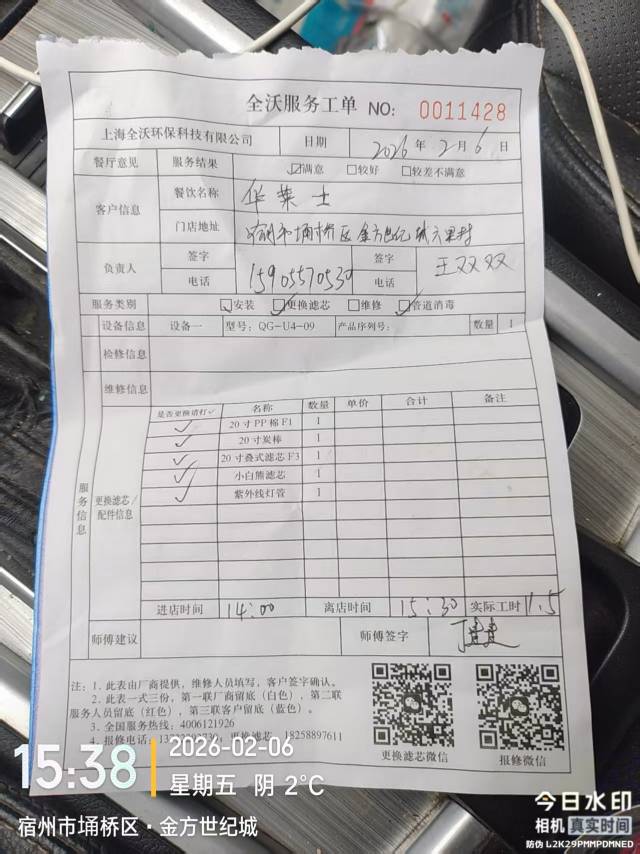 全沃服务工单 NO: 0011428
上海全沃环保科技有限公司 日期 2026年2月6日
餐厅意见 服务结果 ☑满意 □较好 □较差不满意
客户信息 餐饮名称 华莱士
门店地址 宿州市埇桥区金方世纪城六里村
负责人 签字 签字 王双双
电话 15905570530 电话
服务类别 ☑安装 ☑更换滤芯 □维修 ☑管道消毒
设备信息 设备一 型号:QG-U4-09 产品序列号: 数量 1
检修信息
维修信息
服务信息
更换滤芯/配件信息
是否更换请打✓ 名称 数量 单价 合计 备注
✓ 20寸PP棉F1 1
✓ 20寸炭棒 1
✓ 20寸叠式滤芯F3 1
✓ 小白熊滤芯 1
✓ 紫外线灯管 1
进店时间 14:00 离店时间 15:30 实际工时 1.5
师傅建议 师傅签字
注:1、此表由厂商提供,维修人员填写,客户签字确认。
2、此表一式三份,第一联厂商留底(白色),第二联
服务人员留底(红色),第三联客户留底(蓝色)。
3、全国服务热线:4006121926
4、报修电话: 更换滤芯 18258897611
更换滤芯微信 报修微信
15:38
2026-02-06
星期五 阴 2℃
宿州市埇桥区·金方世纪城
今日水印
相机 真实时间
防伪 L2K29PMMPDMNED